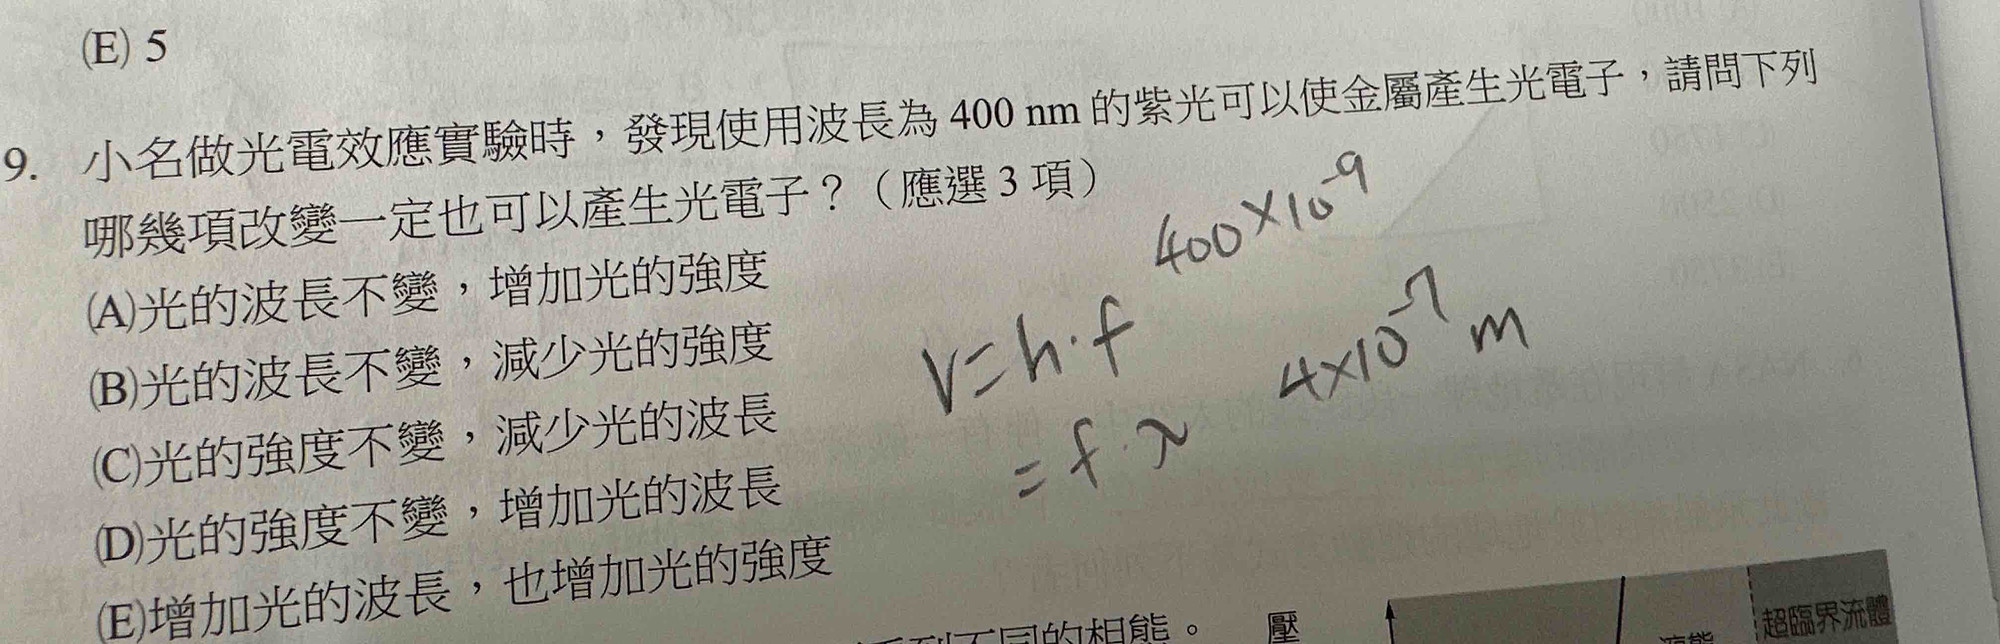 (E) 5
9. 小名做光電效應實驗時，發現使用波長為 400 nm 的紫光可以使金屬產生光電子，請問下列
哪幾項改變一定也可以產生光電子？（應選 3 項）
400×10⁻⁹
(A)光的波長不變，增加光的強度
(B)光的波長不變，減少光的強度
V=h·f
4×10⁻⁷ m
(C)光的強度不變，減少光的波長
=f·λ
(D)光的強度不變，增加光的波長
(E)增加光的波長，也增加光的強度
不同的相態。
壓
液態
超臨界流體